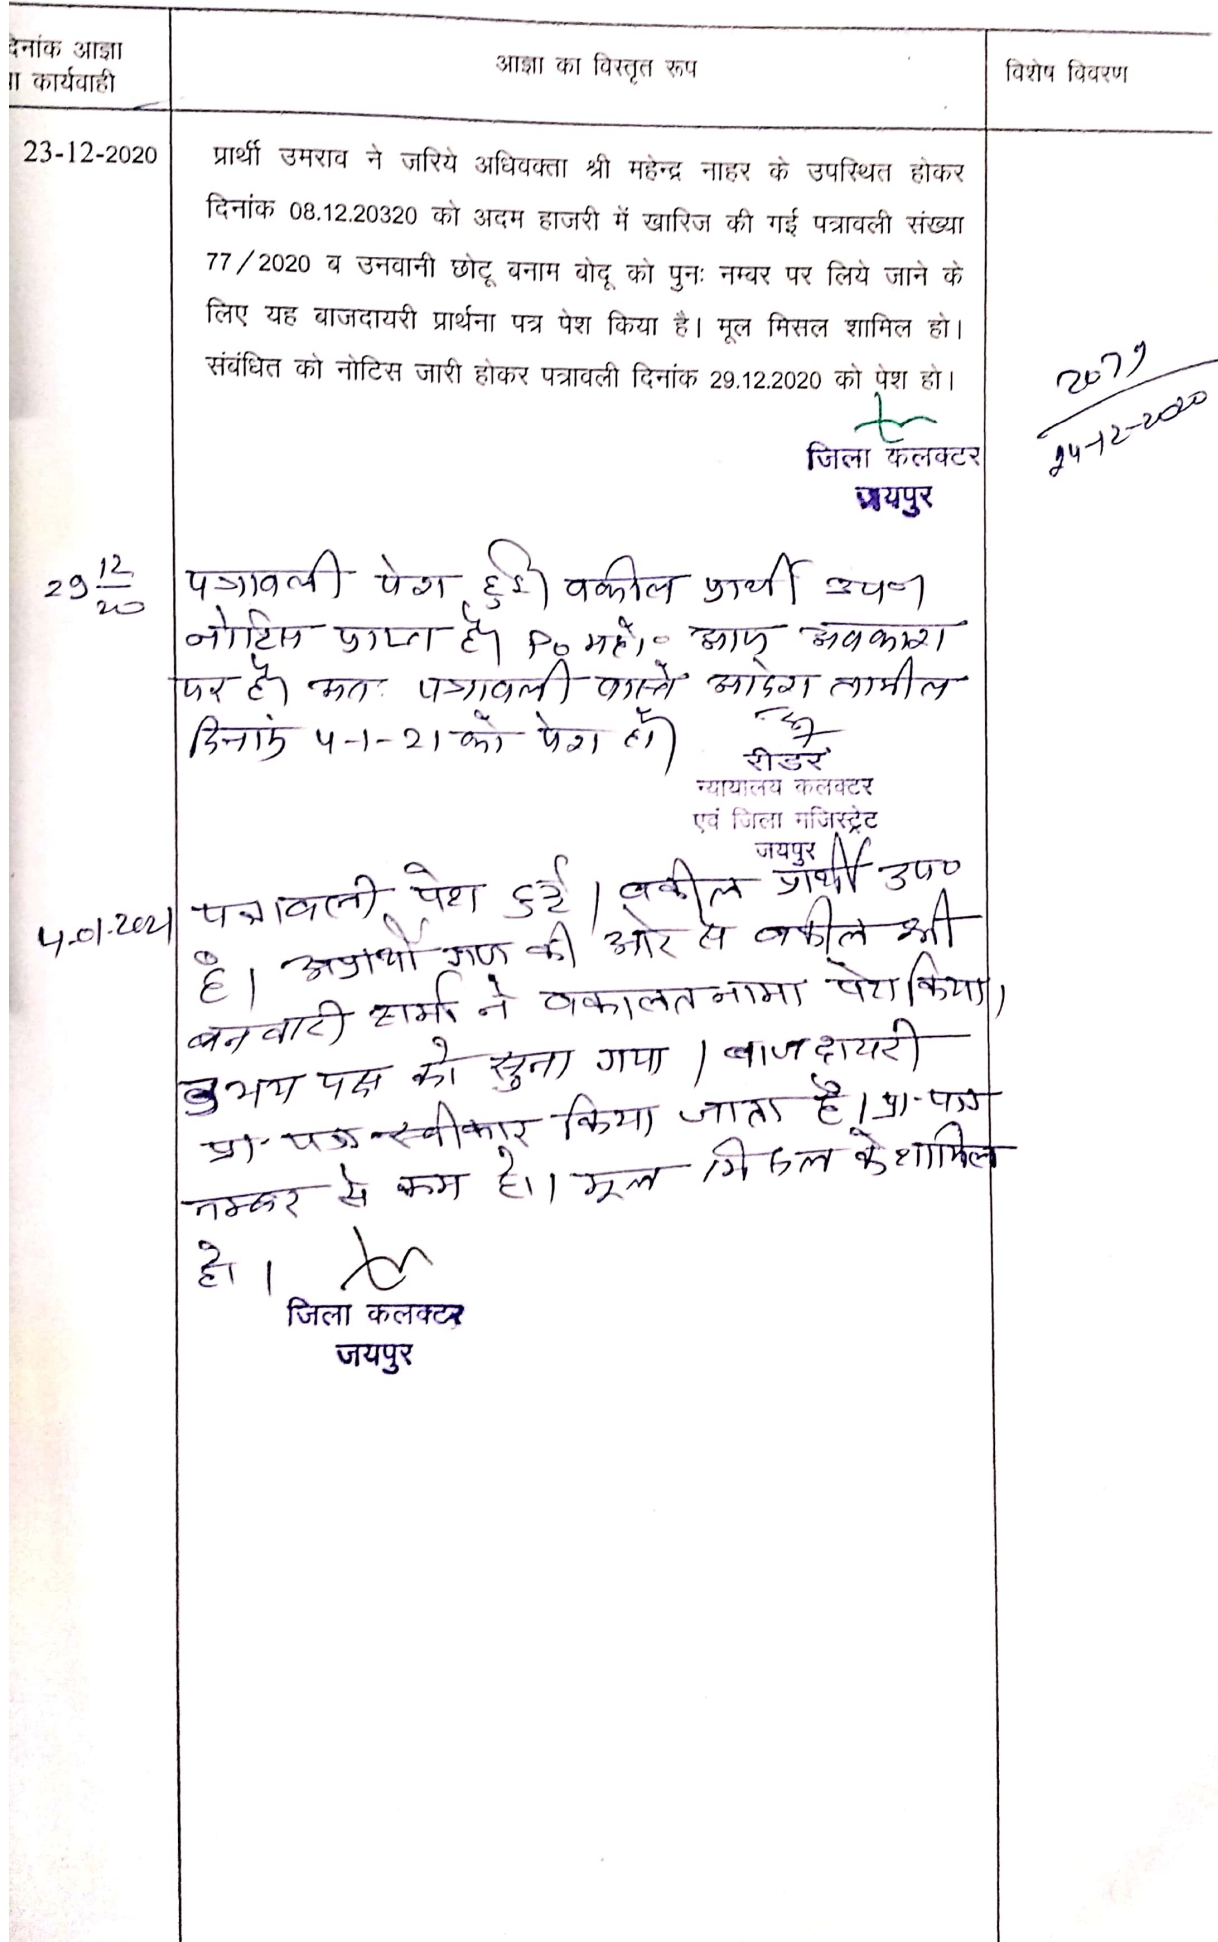 दिनांक आज्ञा
या कार्यवाही
आज्ञा का विस्तृत रूप
विशेष विवरण
23-12-2020
प्रार्थी उमराव ने जरिये अधिवक्ता श्री महेन्द्र नाहर के उपस्थित होकर
दिनांक 08.12.20320 को अदम हाजरी में खारिज की गई पत्रावली संख्या
77/2020 व उनवानी छोटू बनाम बोदू को पुनः नम्बर पर लिये जाने के
लिए यह बाजदायरी प्रार्थना पत्र पेश किया है। मूल मिसल शामिल हो।
संबंधित को नोटिस जारी होकर पत्रावली दिनांक 29.12.2020 को पेश हो।
2079
24-12-2020
जिला कलक्टर
जयपुर
29 12/20
पत्रावली पेश हुई। वकील प्रार्थी उप०
नोटिस प्राप्त है। P० महो० आज अवकाश
पर है। अतः पत्रावली वास्ते आदेश तामील
दिनांक 4-1-21 को पेश हो।
रीडर
न्यायालय कलक्टर
एवं जिला मजिस्ट्रेट
जयपुर
4-01-2021
पत्रावली पेश हुई। वकील प्रार्थी उप०
है। अप्रार्थी गण की ओर से वकील श्री
बनवारी शर्मा ने वकालतनामा पेश किया।
उभय पक्ष को सुना गया। बाजदायरी
प्रा-पत्र स्वीकार किया जाता है। प्रा-पत्र
नम्बर से कम हो। मूल मिसल के शामिल
हो।
जिला कलक्टर
जयपुर